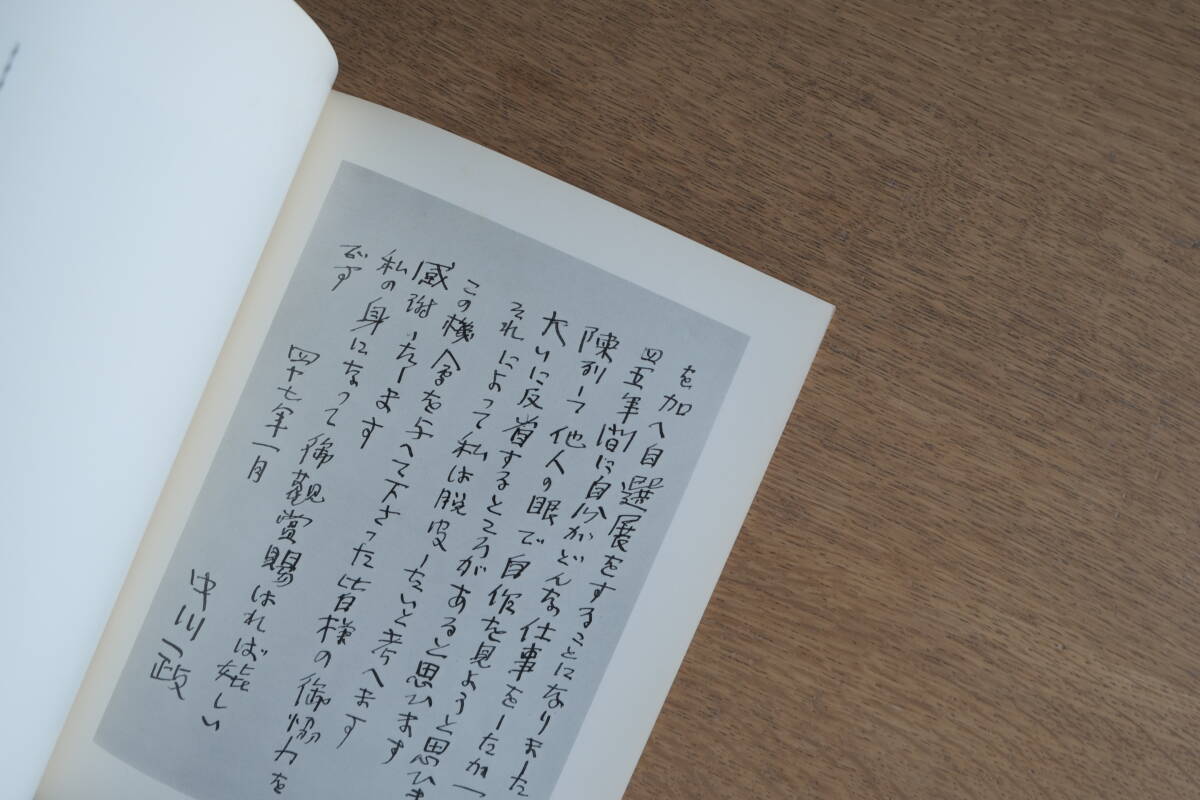 を加へ自選展をすることになりました
四五年の間に自分がどんな仕事をしたか
陳列して他人の眼で自作を見ようと思ひま
大いに反省するところがあると思ひます
それによって私は脱皮したいと考へます
この機會を与へて下さった皆様の御協力を
感謝いたします
私の身になって御觀賞賜はれば嬉しい
です
四十七年一月
中川一政